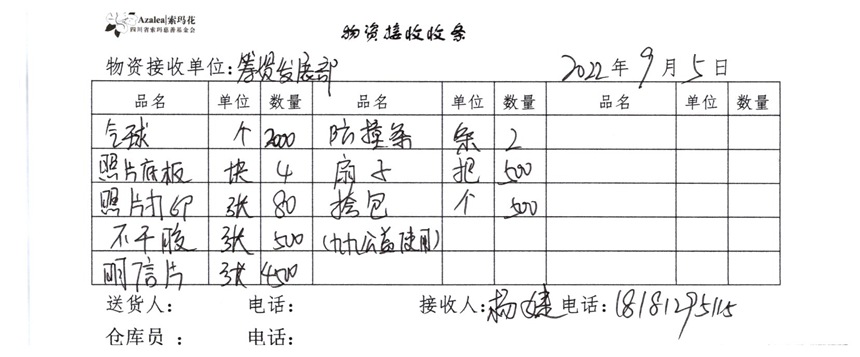 Azalea|索玛花
四川省索玛慈善基金会
物资接收收条
物资接收单位:筹资发展部 2022年9月5日
品名 单位 数量 品名 单位 数量 品名 单位 数量
气球 个 2000 防撞条 条 2
照片底板 块 4 扇子 把 500
照片打印 张 80 挎包 个 500
不干胶 张 500 (九九公益使用)
明信片 张 4500
送货人: 电话: 接收人:杨婕 电话:18181295115
仓库员: 电话: